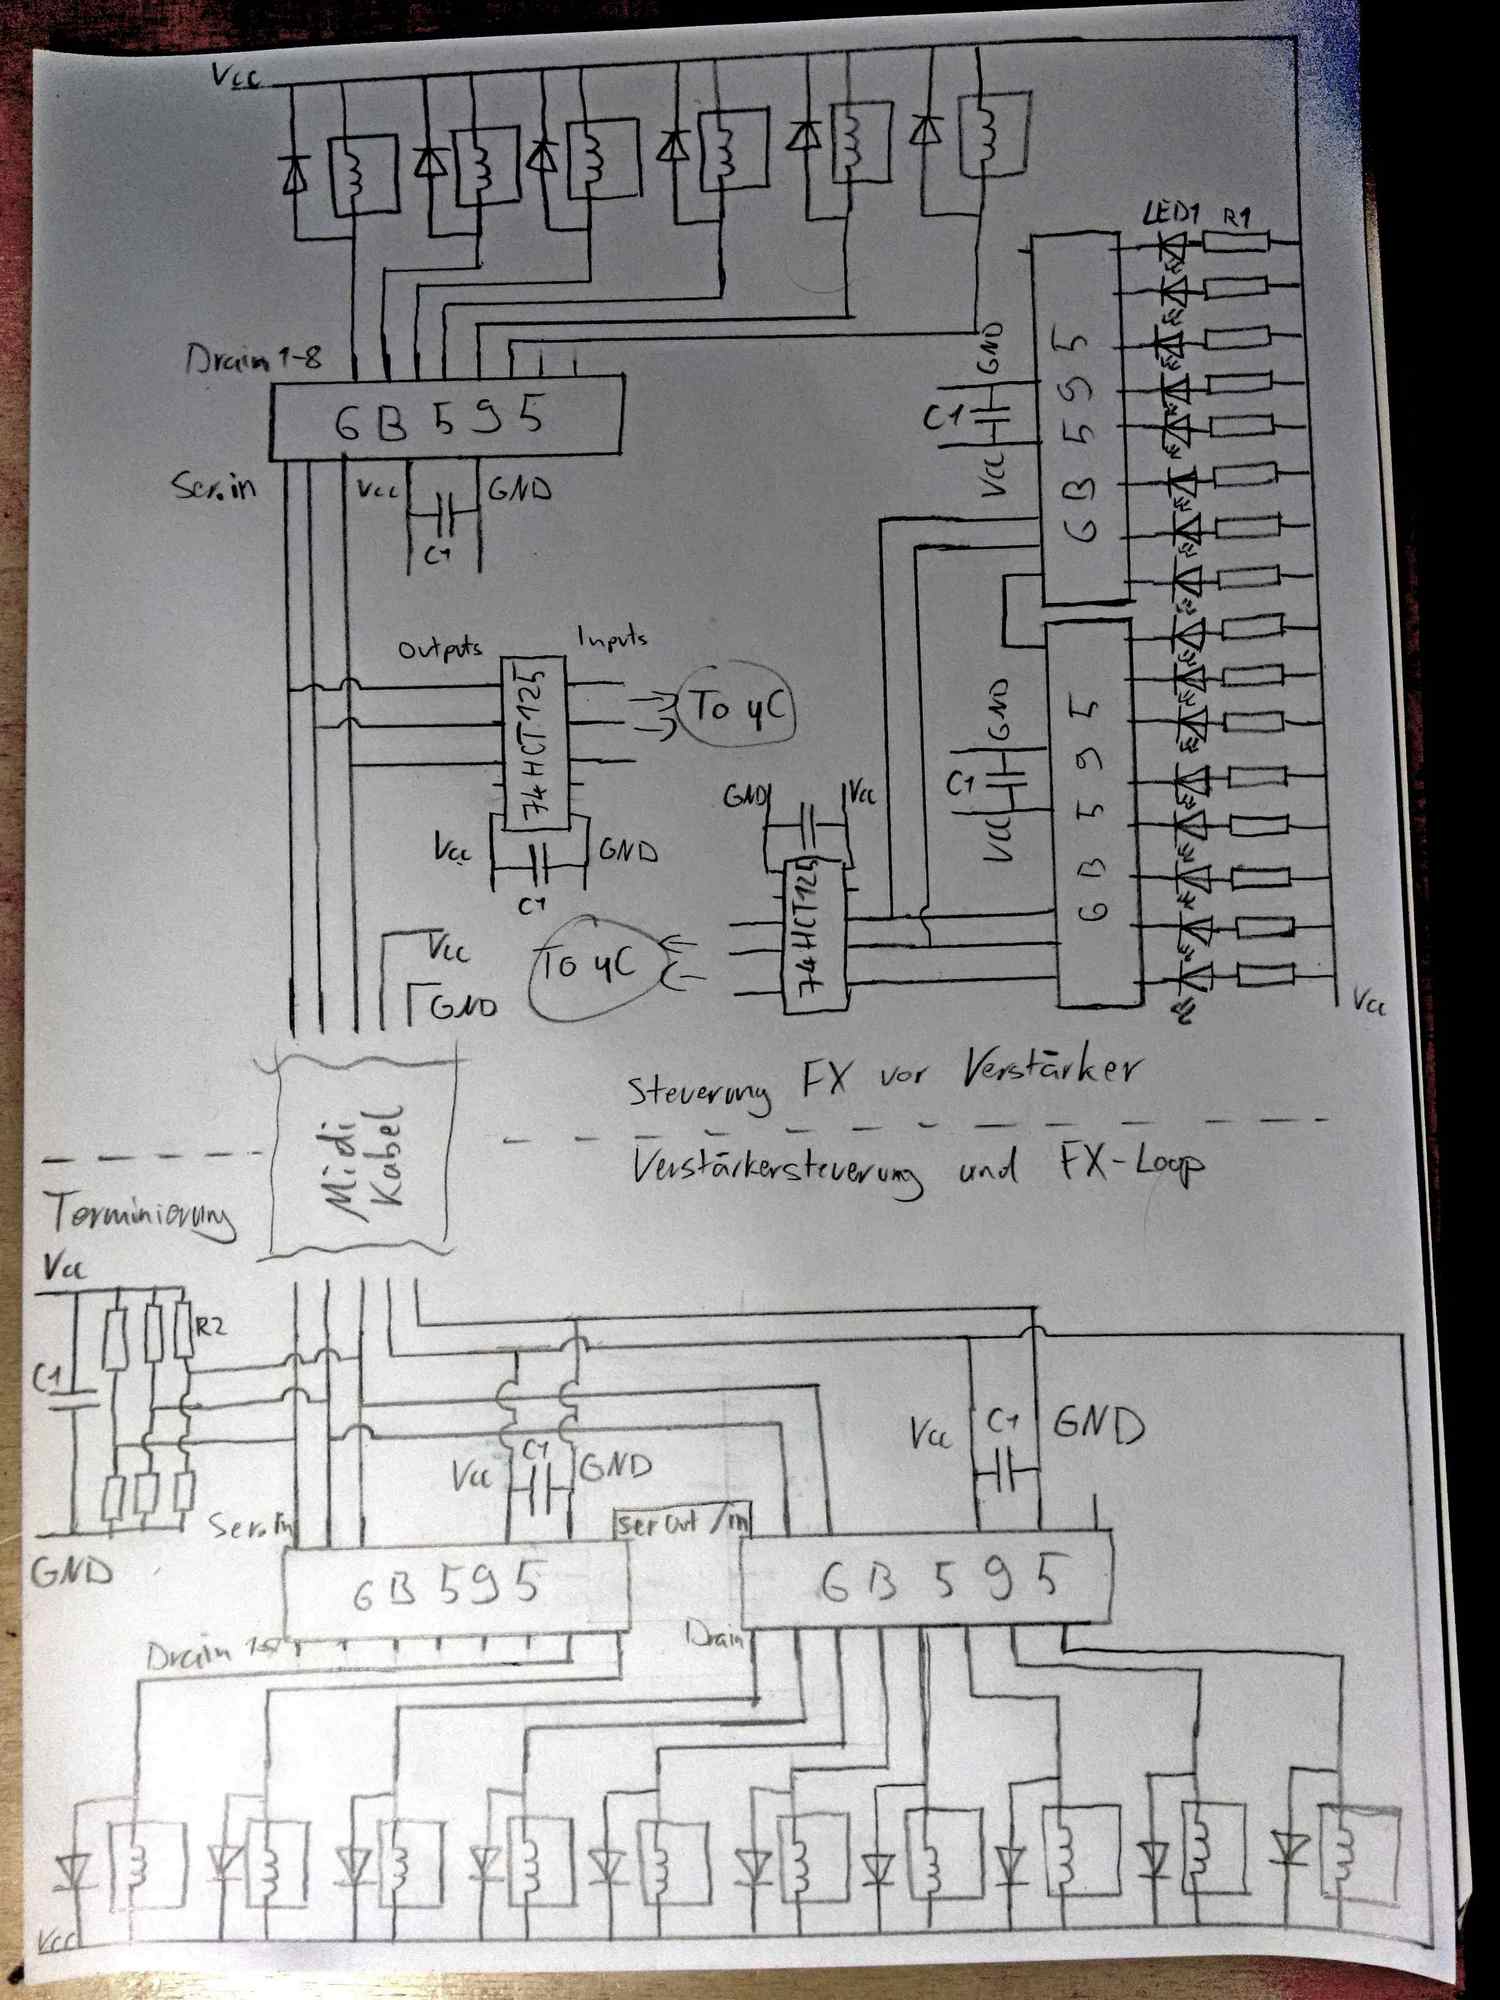 Vcc
LED1 R1
Drain 1-8
6B595
GND
C1
Vcc
6B595
Ser.in
Vcc
GND
C1
Outputs
Inputs
74HCT125
To µC
Vcc
GND
C1
GND
C1
Vcc
6B595
GND
Vcc
74HCT125
To µC
Vcc
GND
Vcc
Steuerung FX vor Verstärker
Midi
Kabel
Verstärkersteuerung und FX-Loop
Terminierung
Vcc
R2
C1
GND
Vcc
C1
GND
Vcc
C1
GND
Ser.In
Ser Out / in
6B595
6B595
Drain
Drain
Vcc